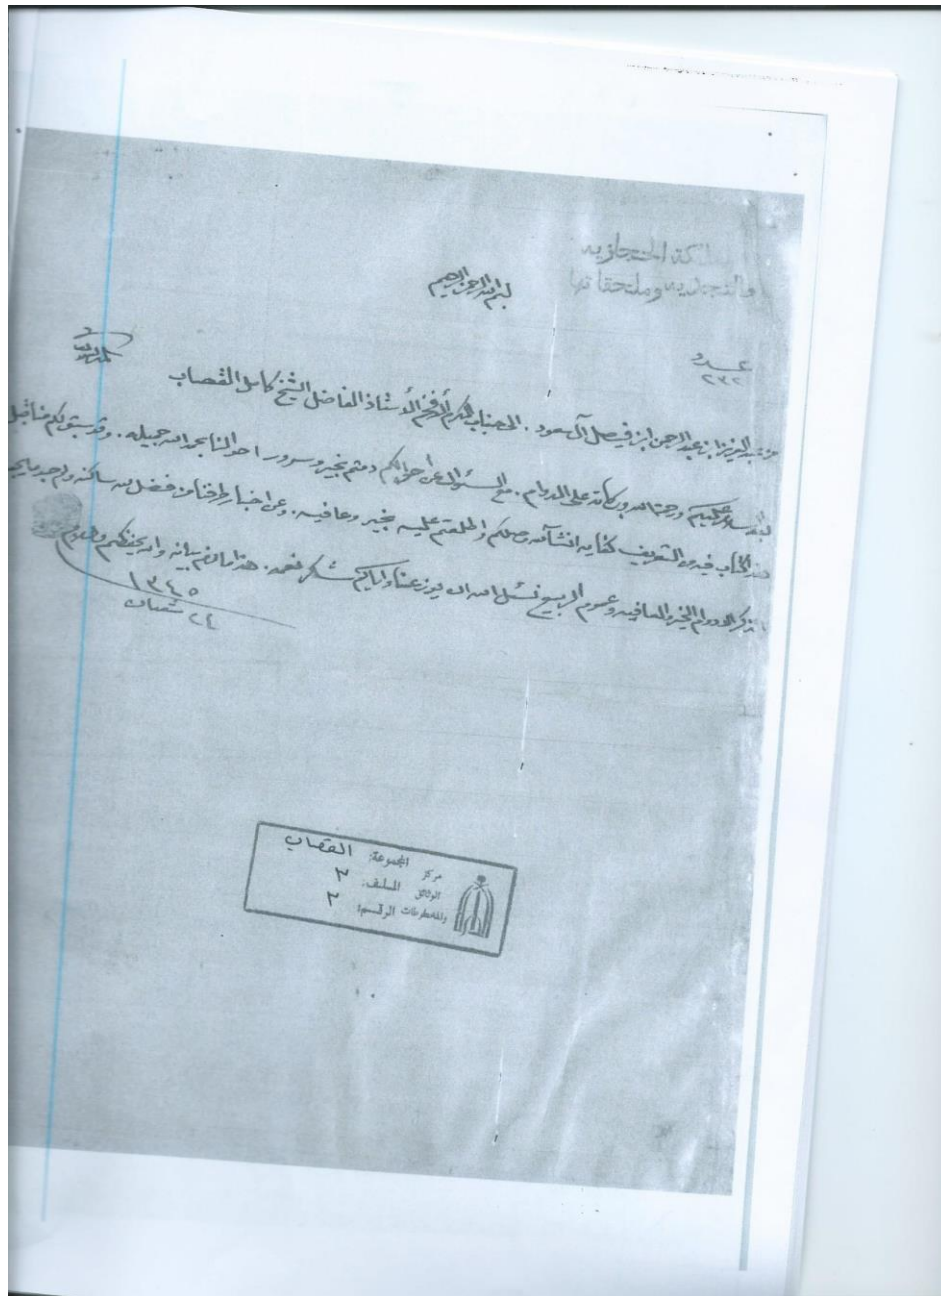 المملكة الحجازية
والنجدية وملحقاتها
بسم الله الرحمن الرحيم
عدد
٢٣٢
من عبد العزيز ابن عبد الرحمن ابن فيصل آل سعود . الى جناب المكرم الأفخم الأستاذ الفاضل الشيخ كامل القصاب
السلام عليكم ورحمة الله وبركاته على الدوام . مع السؤال عن احوالكم دمتم بخير وسرور احوالنا بحمد الله جميله . وقد سبق لكم منا قبل
هذا كتاب فيه من التعريف كفايه انشاء الله وصلكم واطلعتم عليه بخير وعافيه . وعن اخبار طرفنا من فضل الله ساكنه ولم يجد ما يجب
يذكر الا دوام الخير والعافيه وعموم الربيع نسئل الله ان يوزعنا واياكم شكر نعمه . هذا ما لزم بيانه والله يحفظكم
١٣٤٥
٢٤ شعبان
مركز الوثائق والمخطوطات
المجموعة: القصاب
الملف: ٣
الرقم: ٣